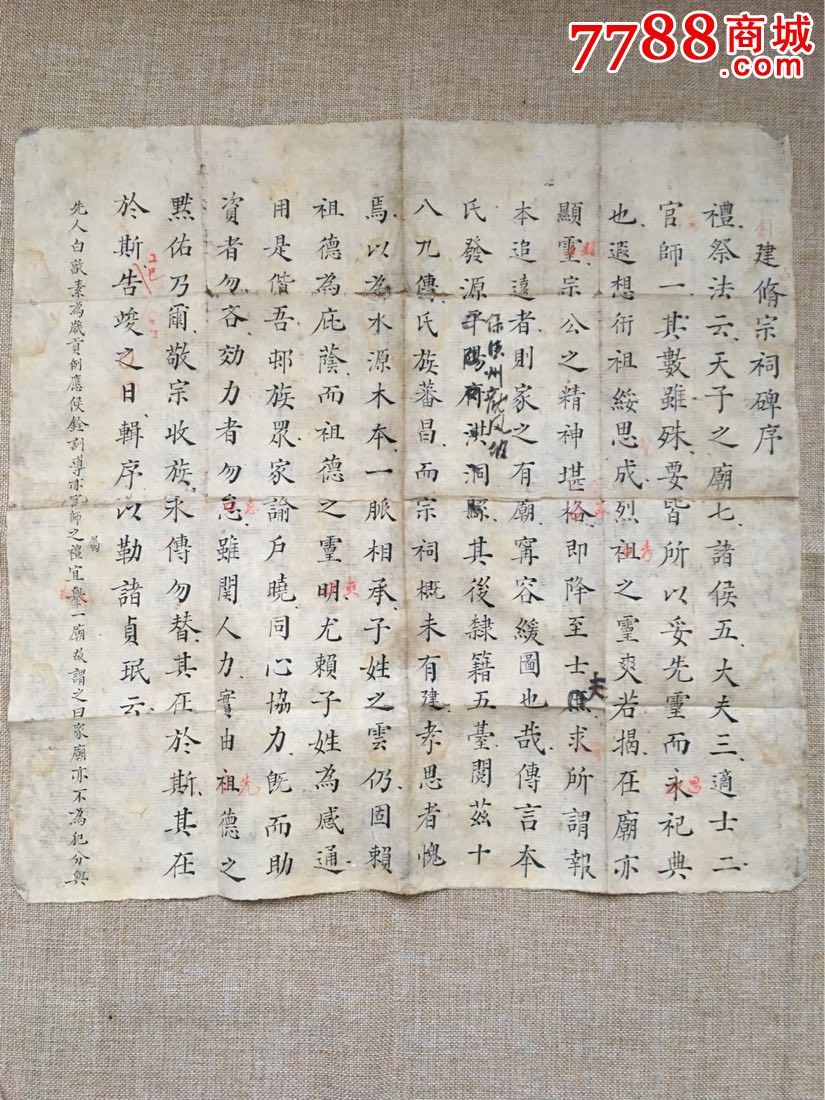 7788商城
.com
創建脩宗祠碑序
禮祭法云天子之廟七諸侯五大夫三適士二
官師一其數雖殊要皆所以妥先靈而永祀典
也遐想衎祖綏思成烈祖之靈爽若揭在廟亦
顯靈宗公之精神堪格即降至士庶求所謂報
夫
本追遠者則家之有廟甯容緩圖也哉傳言本
氏發源平陽府洪洞縣其後隸籍五臺閱茲十
八九傳氏族蕃昌而宗祠概未有建孝思者愧
焉以為水源木本一脈相承子姓之雲仍固賴
祖德為庇蔭而祖德之靈明尤賴子姓為感通
用是偕吾邨族眾家諭戶曉同心協力既而助
資者勿吝効力者勿怠雖関人力實由祖德之
黙佑乃爾敬宗收族永傳勿替其在於斯其在
於斯告竣之日輯序以勒諸貞珉云
先人白歐素為歲貢例應候銓訓導亦官師之禮宜舉一廟故謂之曰家廟亦不為犯分與
昌
孝
惠
先